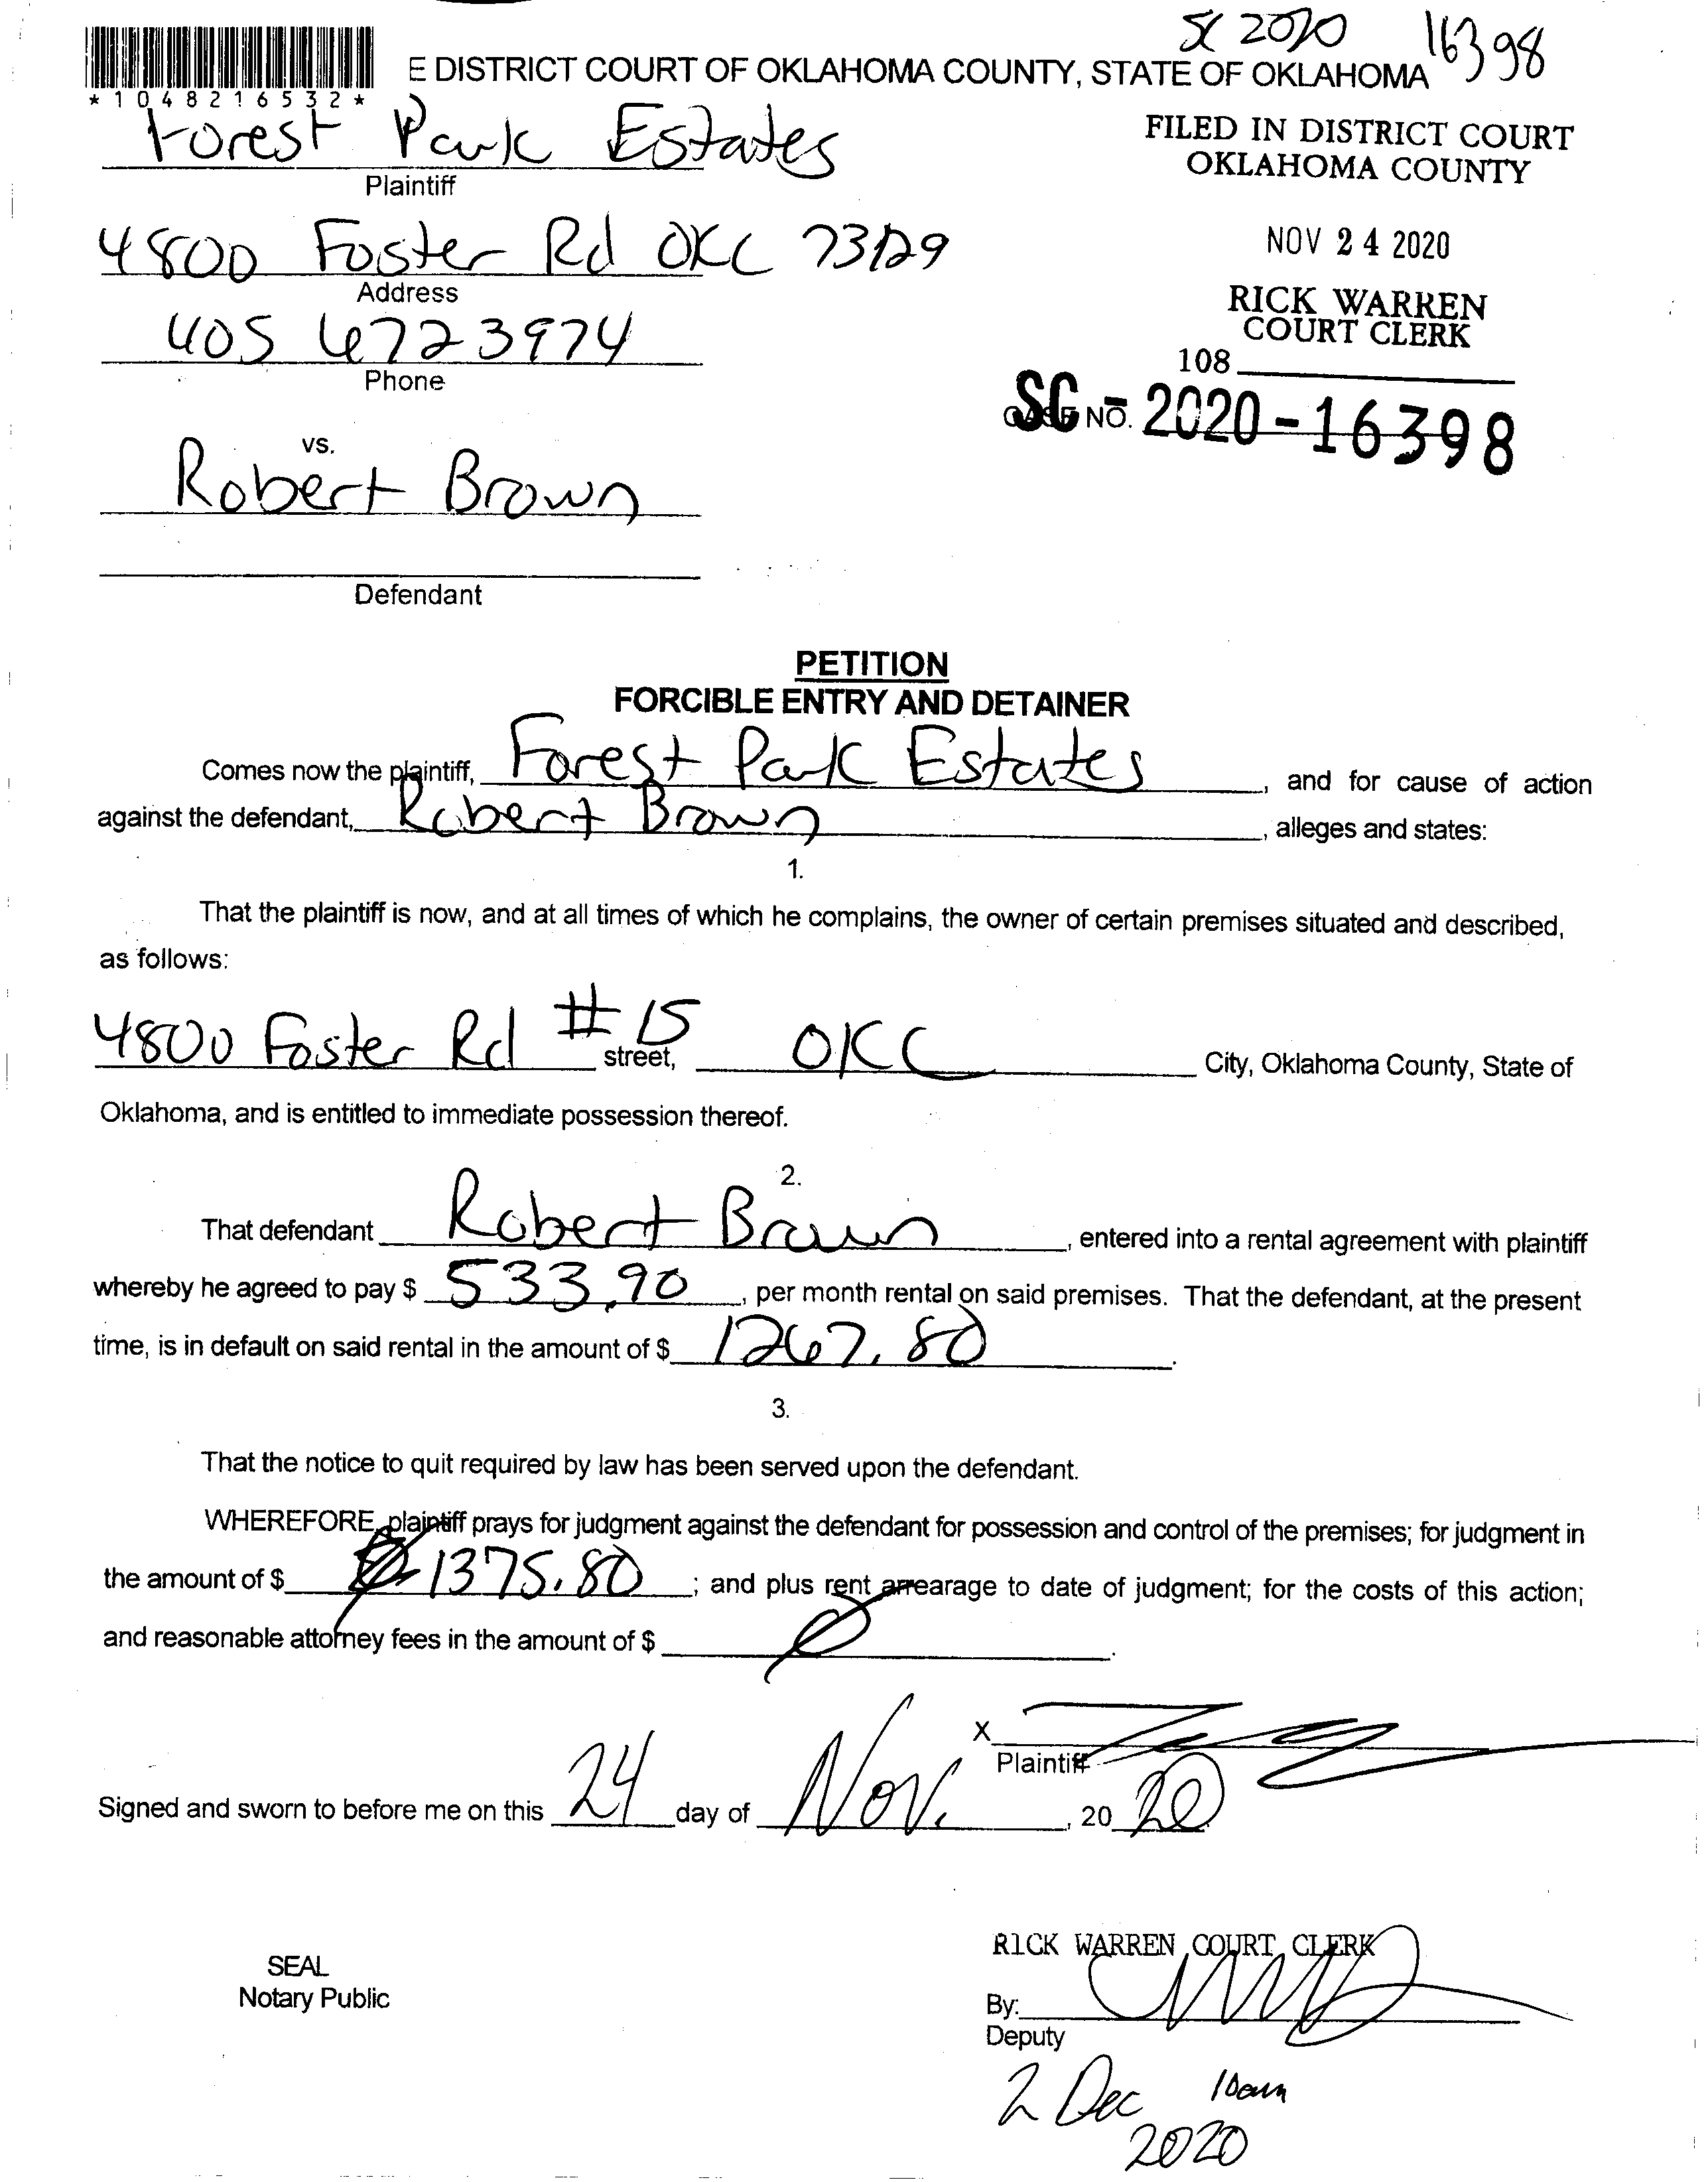 SC 2020 16398
E DISTRICT COURT OF OKLAHOMA COUNTY, STATE OF OKLAHOMA
*1048216532*
Forest Park Estates
Plaintiff
FILED IN DISTRICT COURT
OKLAHOMA COUNTY
4800 Foster Rd OKC 73129
Address
NOV 24 2020
405 6723974
Phone
RICK WARREN
COURT CLERK
108
CASE NO.
SC-2020-16398
vs.
Robert Brown
Defendant
PETITION
FORCIBLE ENTRY AND DETAINER
Comes now the plaintiff, Forest Park Estates, and for cause of action
against the defendant, Robert Brown, alleges and states:
1.
That the plaintiff is now, and at all times of which he complains, the owner of certain premises situated and described,
as follows:
4800 Foster Rd #15 street, OKC City, Oklahoma County, State of
Oklahoma, and is entitled to immediate possession thereof.
2.
That defendant Robert Brown, entered into a rental agreement with plaintiff
whereby he agreed to pay $ 533.90, per month rental on said premises. That the defendant, at the present
time, is in default on said rental in the amount of $ 1267.80.
3.
That the notice to quit required by law has been served upon the defendant.
WHEREFORE, plaintiff prays for judgment against the defendant for possession and control of the premises; for judgment in
the amount of $ 1375.80; and plus rent arrearage to date of judgment; for the costs of this action;
and reasonable attorney fees in the amount of $ 0.
X
Plaintiff
Signed and sworn to before me on this 24 day of Nov., 20 20
RICK WARREN COURT CLERK
SEAL
Notary Public
By:
Deputy
2 Dec 10am
2020